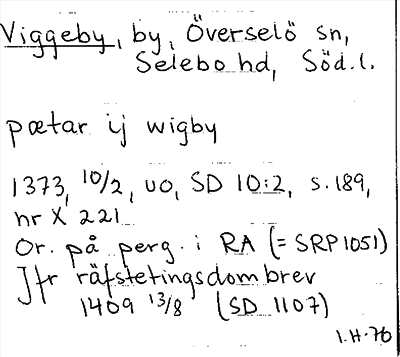 Viggeby, by, Överselö sn,
Selebo hd, Söd.l.
pætar ij wigby
1373, 10/2, uo, SD 10:2, s. 189,
nr X 221
Or. på perg. i RA (= SRP 1051)
Jfr räfstetingsdombrev
1409 13/8 (SD 1107)
I.H-70